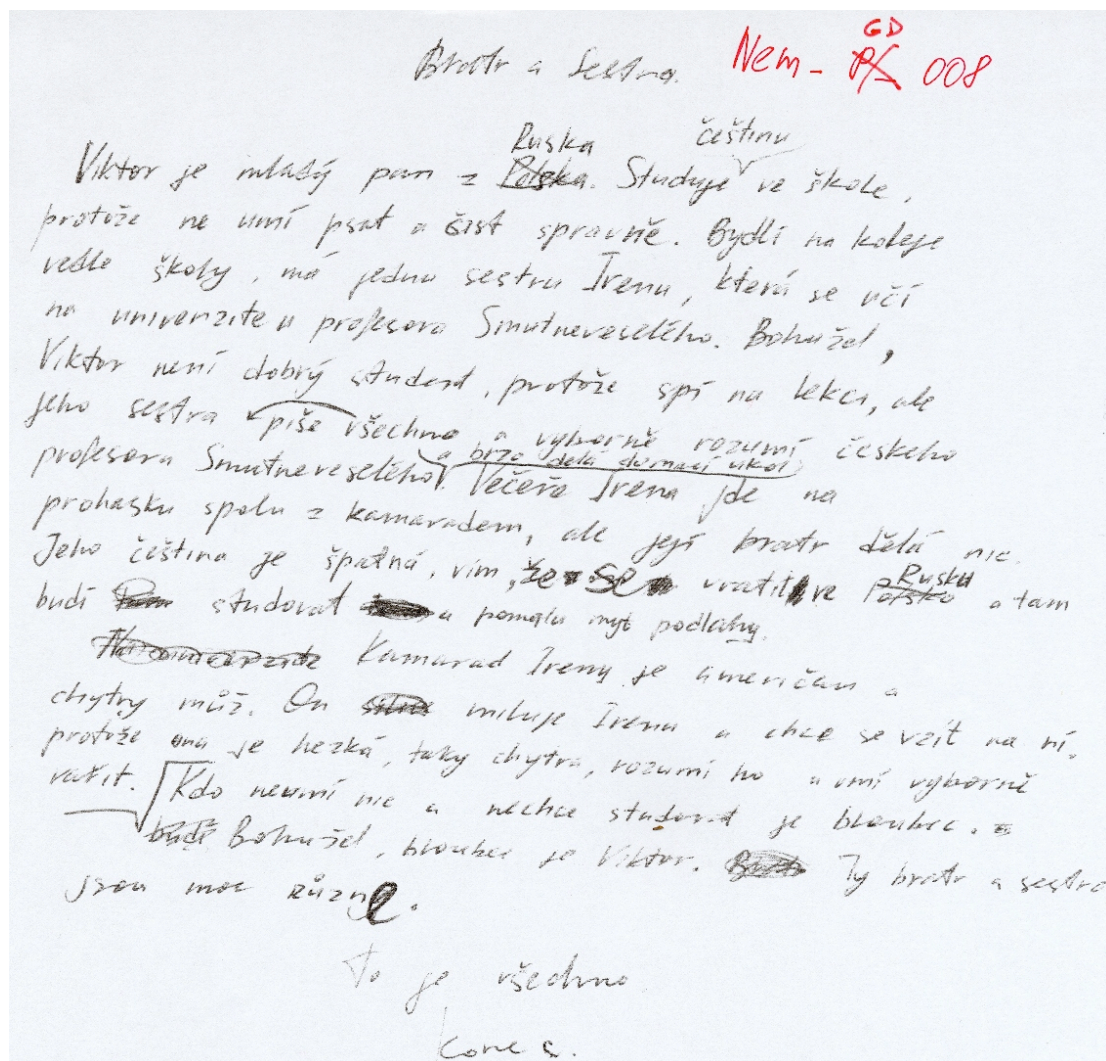 Bratr a Sestra. Nem - GD P/S 008
Ruska češtinu
Viktor je mladý pan z Polska. Studuje ve škole,
protože ne umí psat a čist spravně. Bydlí na koleje
vedle školy, má jednu sestru Irenu, která se učí
na univerzite u profesora Smutneveselého. Bohužel,
Viktor není dobrý student, protože spí na lekci, ale
jeho sestra piše všechno a výborně rozumí českeho
a brzo delá domací ukol
profesora Smutneveselého. Večeře Irena jde na
prohasku spolu z kamaradem, ale její bratr dělá nic.
Jeho čeština je špatná, vím, že se vratil ve Polsko Rusku a tam
budí studovat a pomalu myt podlahy.
Kamarad Ireny je američan a
chytry můž. On miluje Irenu a chce se vzít na ní,
protože ona je hezká, taky chytra, rozumí ho a umí výborně
vařit. Kdo neumí nic a nechce studovat je bloubec.
budě Bohužel, bloubec je Viktor. Ty bratr a sestra
jsou moc různe.
To je všechno
Konec.